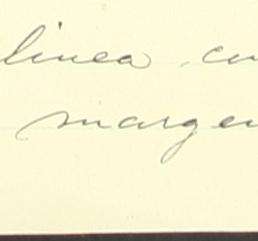 linea
margen